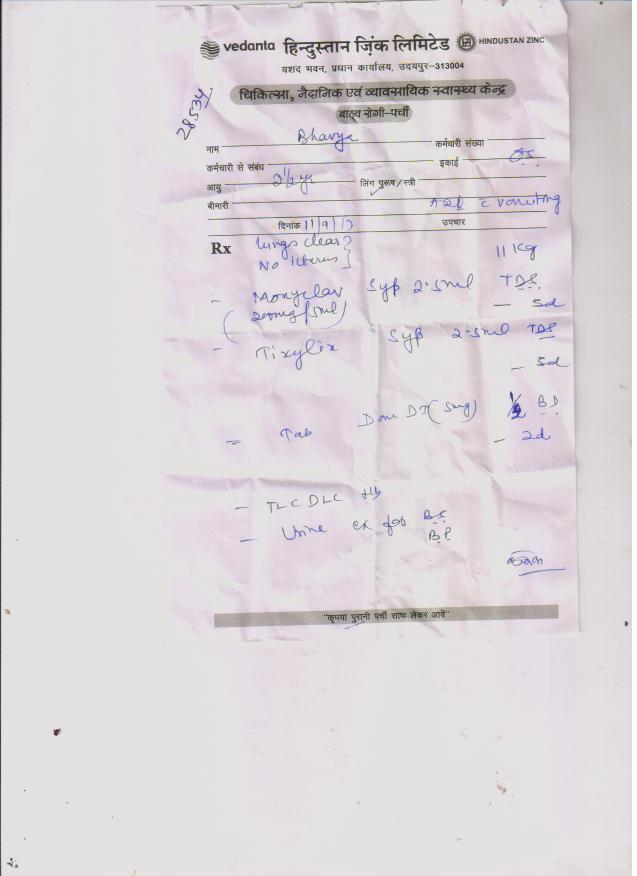 vedanta हिन्दुस्तान ज़िंक लिमिटेड HINDUSTAN ZINC
यशद भवन, प्रधान कार्यालय, उदयपुर–313004
28534
चिकित्सा, नैदानिक एवं व्यावसायिक स्वास्थ्य केन्द्र
बाह्य रोगी-पर्ची
नाम Bhavya कर्मचारी संख्या
कर्मचारी से संबंध इकाई
आयु 2½ yr लिंग पुरूष/स्त्री
बीमारी c vomiting
दिनांक 11/9/17 उपचार
Rx Lungs clear
No icterus 11 Kg
- Moxyclav Syp 2.5ml TDS
(200mg/5ml) - 5d
- Tixylix Syp 2.5ml TDS
- 5d
- Tab Dom DT (5mg) ½ BD
- 2d
- TLC DLC Hb
- Urine ex for B.S.
B.P.
"कृपया पुरानी पर्ची साथ लेकर आवें"